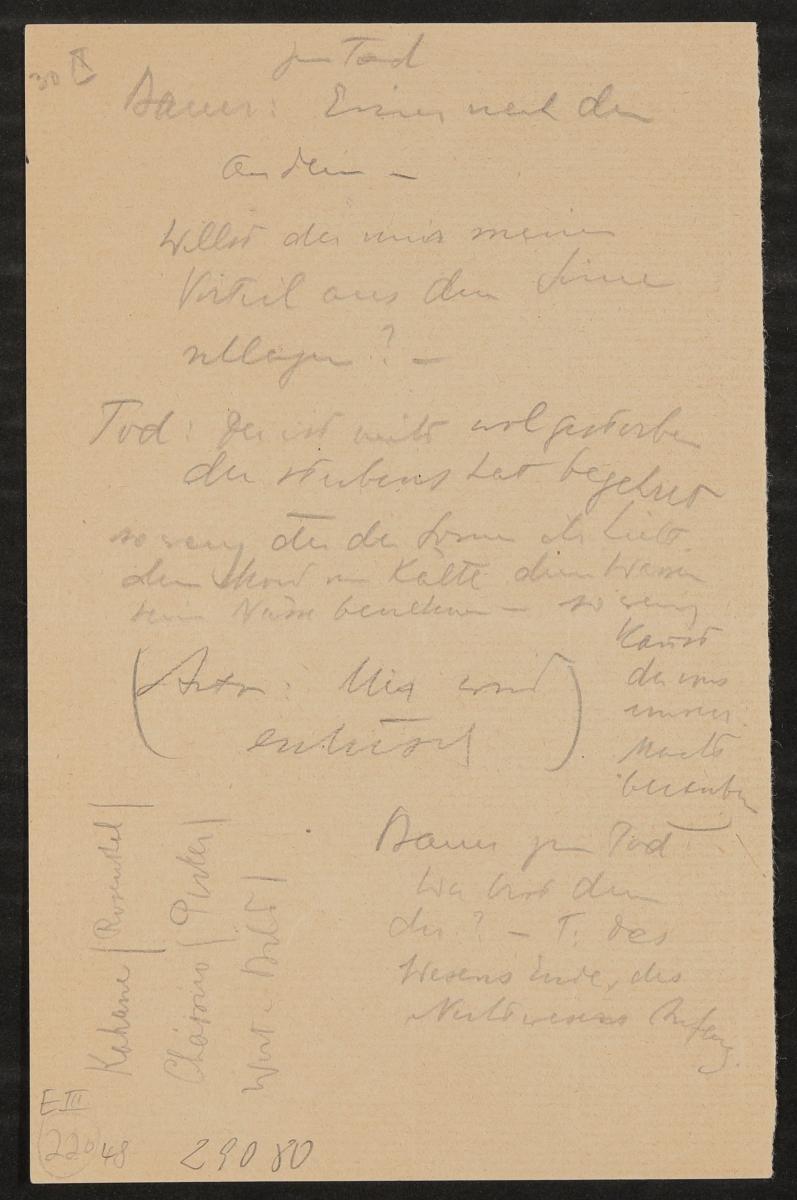 30 X
zum Tod
Bauer: Einer nach dem
andern –
Willst du mir meinen
Vorteil aus dem Sinne
schlagen? –
Tod: Der ist nicht wol gestorben
der sterbens hat begehrt
so wenig du der Sonne ihr Licht
dem Mond sein Kälte dem Wasser
sein Nässe benehmen – so wenig
kannst
du uns
unsrer
Macht
berauben
(Arzt: Mix und
Bauer zum Tod
Wer bist denn
du? – T: des
Wesens Ende, des
Nichtwesens Anfang.
Kahane | Rosenthal |
Pirker |
Wort u Bild |
E III
220 48
29080